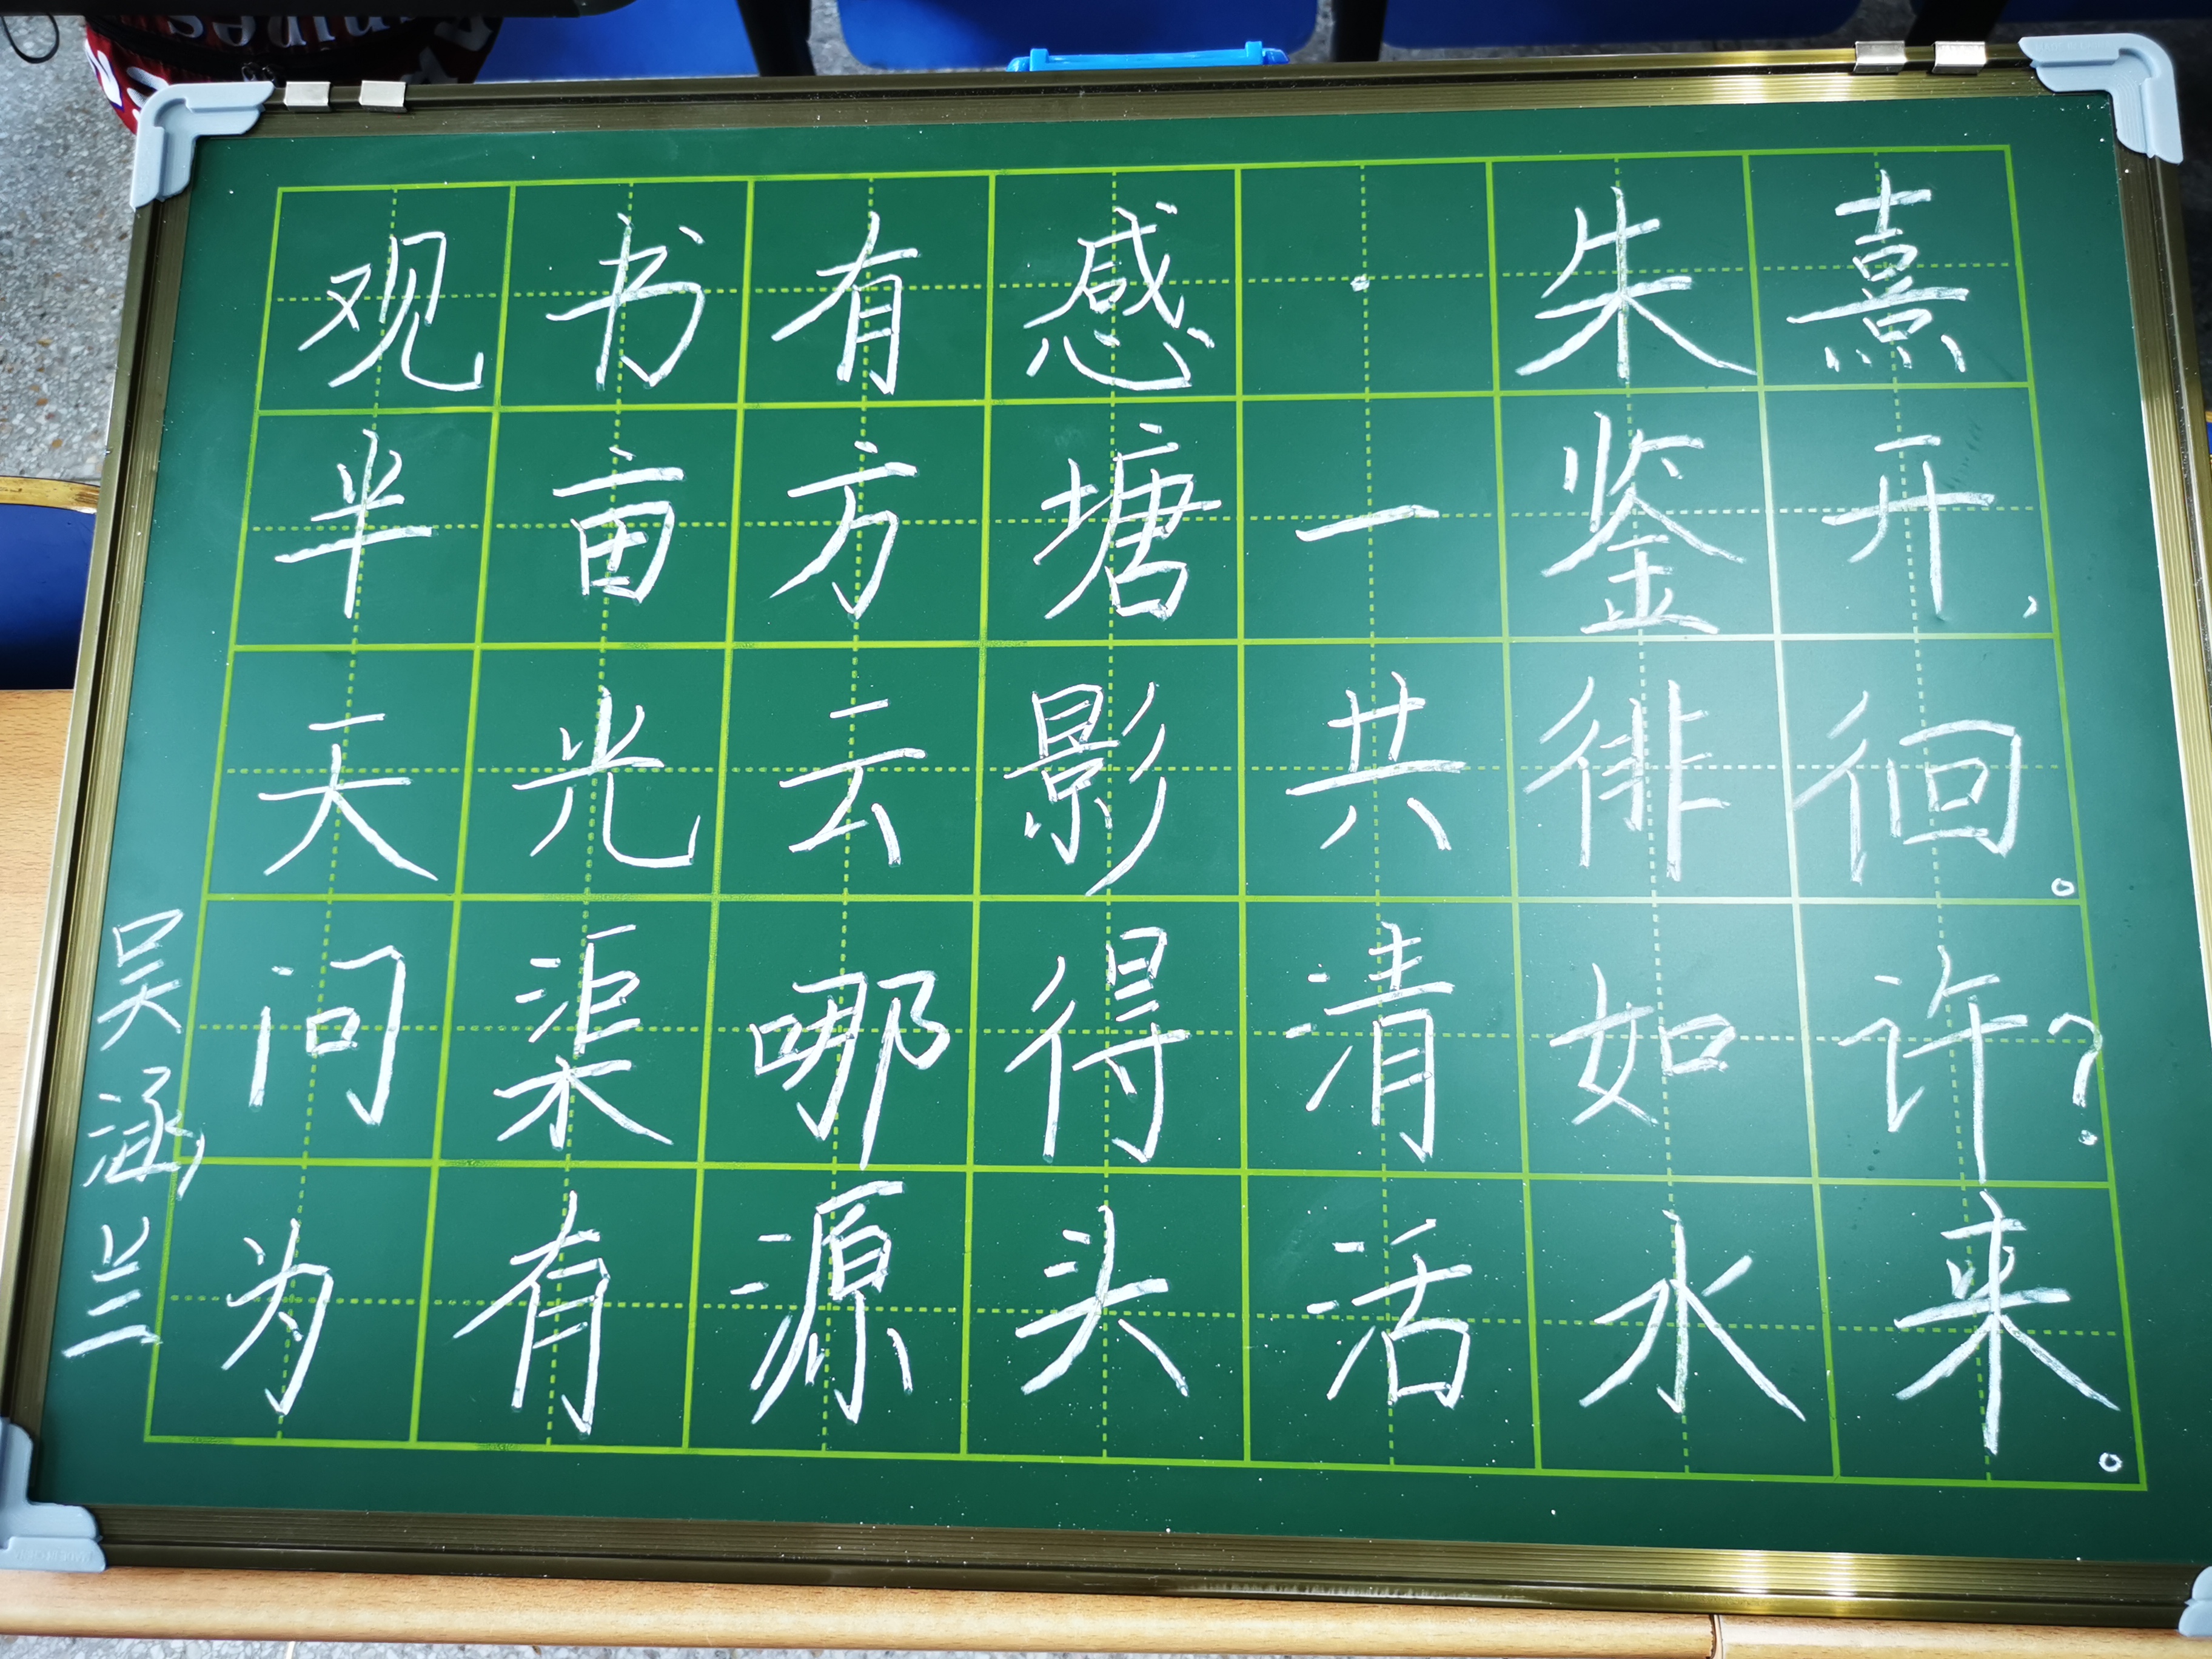 观书有感·朱熹
半亩方塘一鉴开,
天光云影共徘徊。
问渠哪得清如许?
为有源头活水来。
吴涵兰